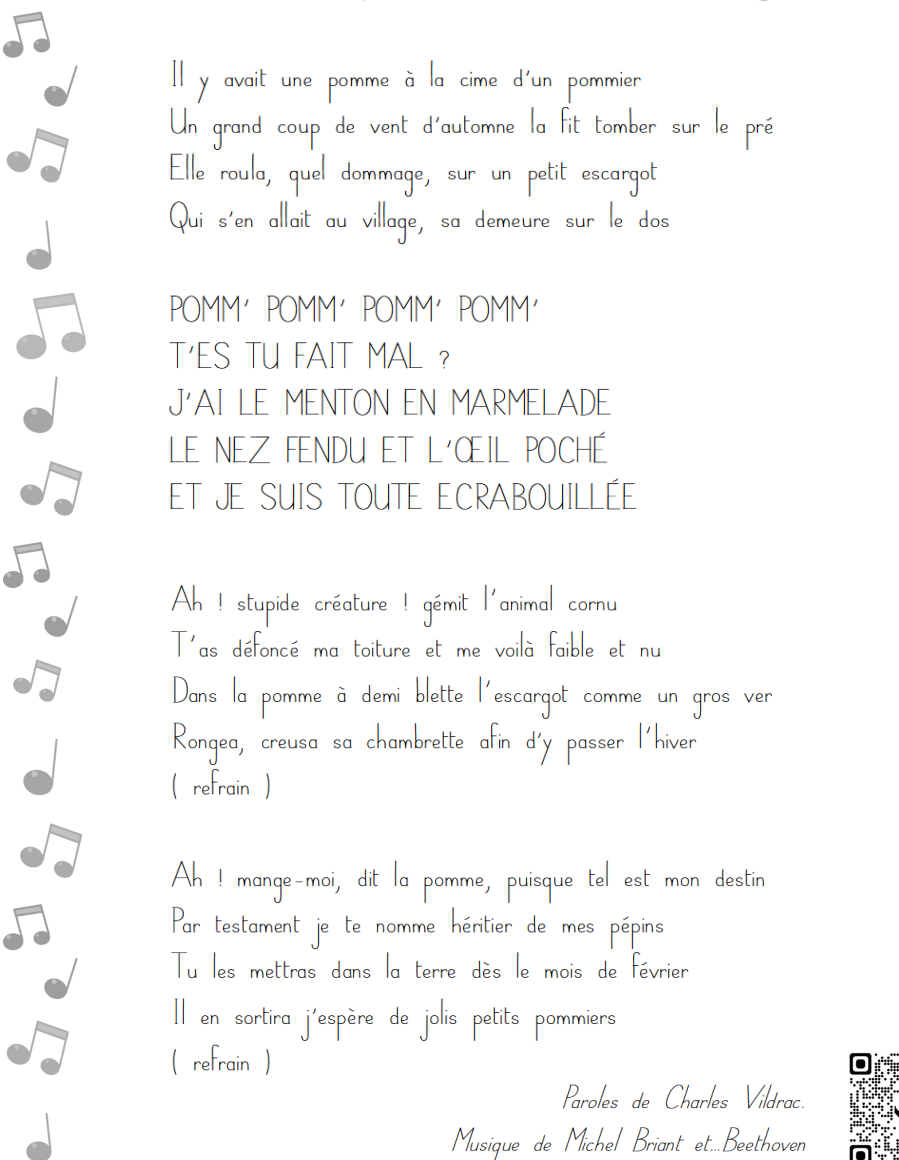 Il y avait une pomme à la cime d'un pommier
Un grand coup de vent d'automne la fit tomber sur le pré
Elle roula, quel dommage, sur un petit escargot
Qui s'en allait au village, sa demeure sur le dos
POMM' POMM' POMM' POMM'
T'ES TU FAIT MAL ?
J'AI LE MENTON EN MARMELADE
LE NEZ FENDU ET L'ŒIL POCHÉ
ET JE SUIS TOUTE ECRABOUILLÉE
Ah ! stupide créature ! gémit l'animal cornu
T'as défoncé ma toiture et me voilà faible et nu
Dans la pomme à demi blette l'escargot comme un gros ver
Rongea, creusa sa chambrette afin d'y passer l'hiver
( refrain )
Ah ! mange-moi, dit la pomme, puisque tel est mon destin
Par testament je te nomme héritier de mes pépins
Tu les mettras dans la terre dès le mois de février
Il en sortira j'espère de jolis petits pommiers
( refrain )
Paroles de Charles Vildrac.
Musique de Michel Briant et...Beethoven